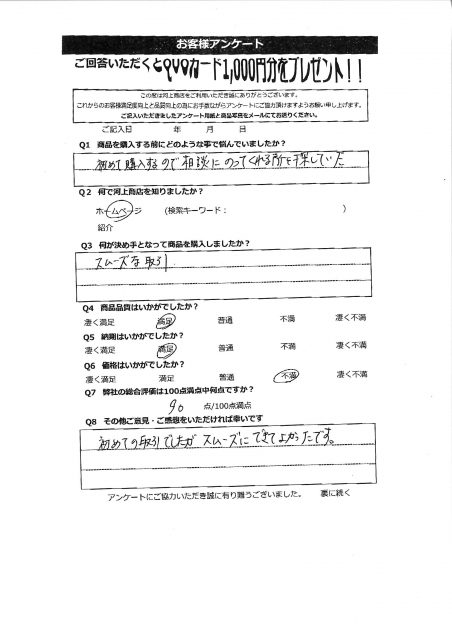 お客様アンケート
ご回答いただくとQUOカード1,000円分をプレゼント!!
この度は河上商店をご利用いただき誠にありがとうございます。
これからのお客様満足度向上と品質向上の為にお手数ながらアンケートにご協力頂けますようお願い申し上げます。
ご記入いただきましたアンケート用紙と商品写真をメールにてお送りください。
ご記入日 年 月 日
Q1 商品を購入する前にどのような事で悩んでいましたか?
初めて購入するので相談にのってくれる所を探していた
Q2 何で河上商店を知りましたか?
ホームページ (検索キーワード: )
紹介
Q3 何が決め手となって商品を購入しましたか?
スムーズな取引
Q4 商品品質はいかがでしたか?
凄く満足 満足 普通 不満 凄く不満
Q5 納期はいかがでしたか?
凄く満足 満足 普通 不満 凄く不満
Q6 価格はいかがでしたか?
凄く満足 満足 普通 不満 凄く不満
Q7 弊社の総合評価は100点満点中何点ですか?
90 点/100点満点
Q8 その他ご意見・ご感想をいただければ幸いです
初めての取引でしたがスムーズにできてよかったです。
アンケートにご協力いただき誠に有り難うございました。 裏に続く